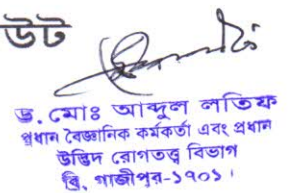 উট
ড. মোঃ আব্দুল লতিফ
প্রধান বৈজ্ঞানিক কর্মকর্তা এবং প্রধান
উদ্ভিদ রোগতত্ত্ব বিভাগ
ব্রি, গাজীপুর-১৭০১।